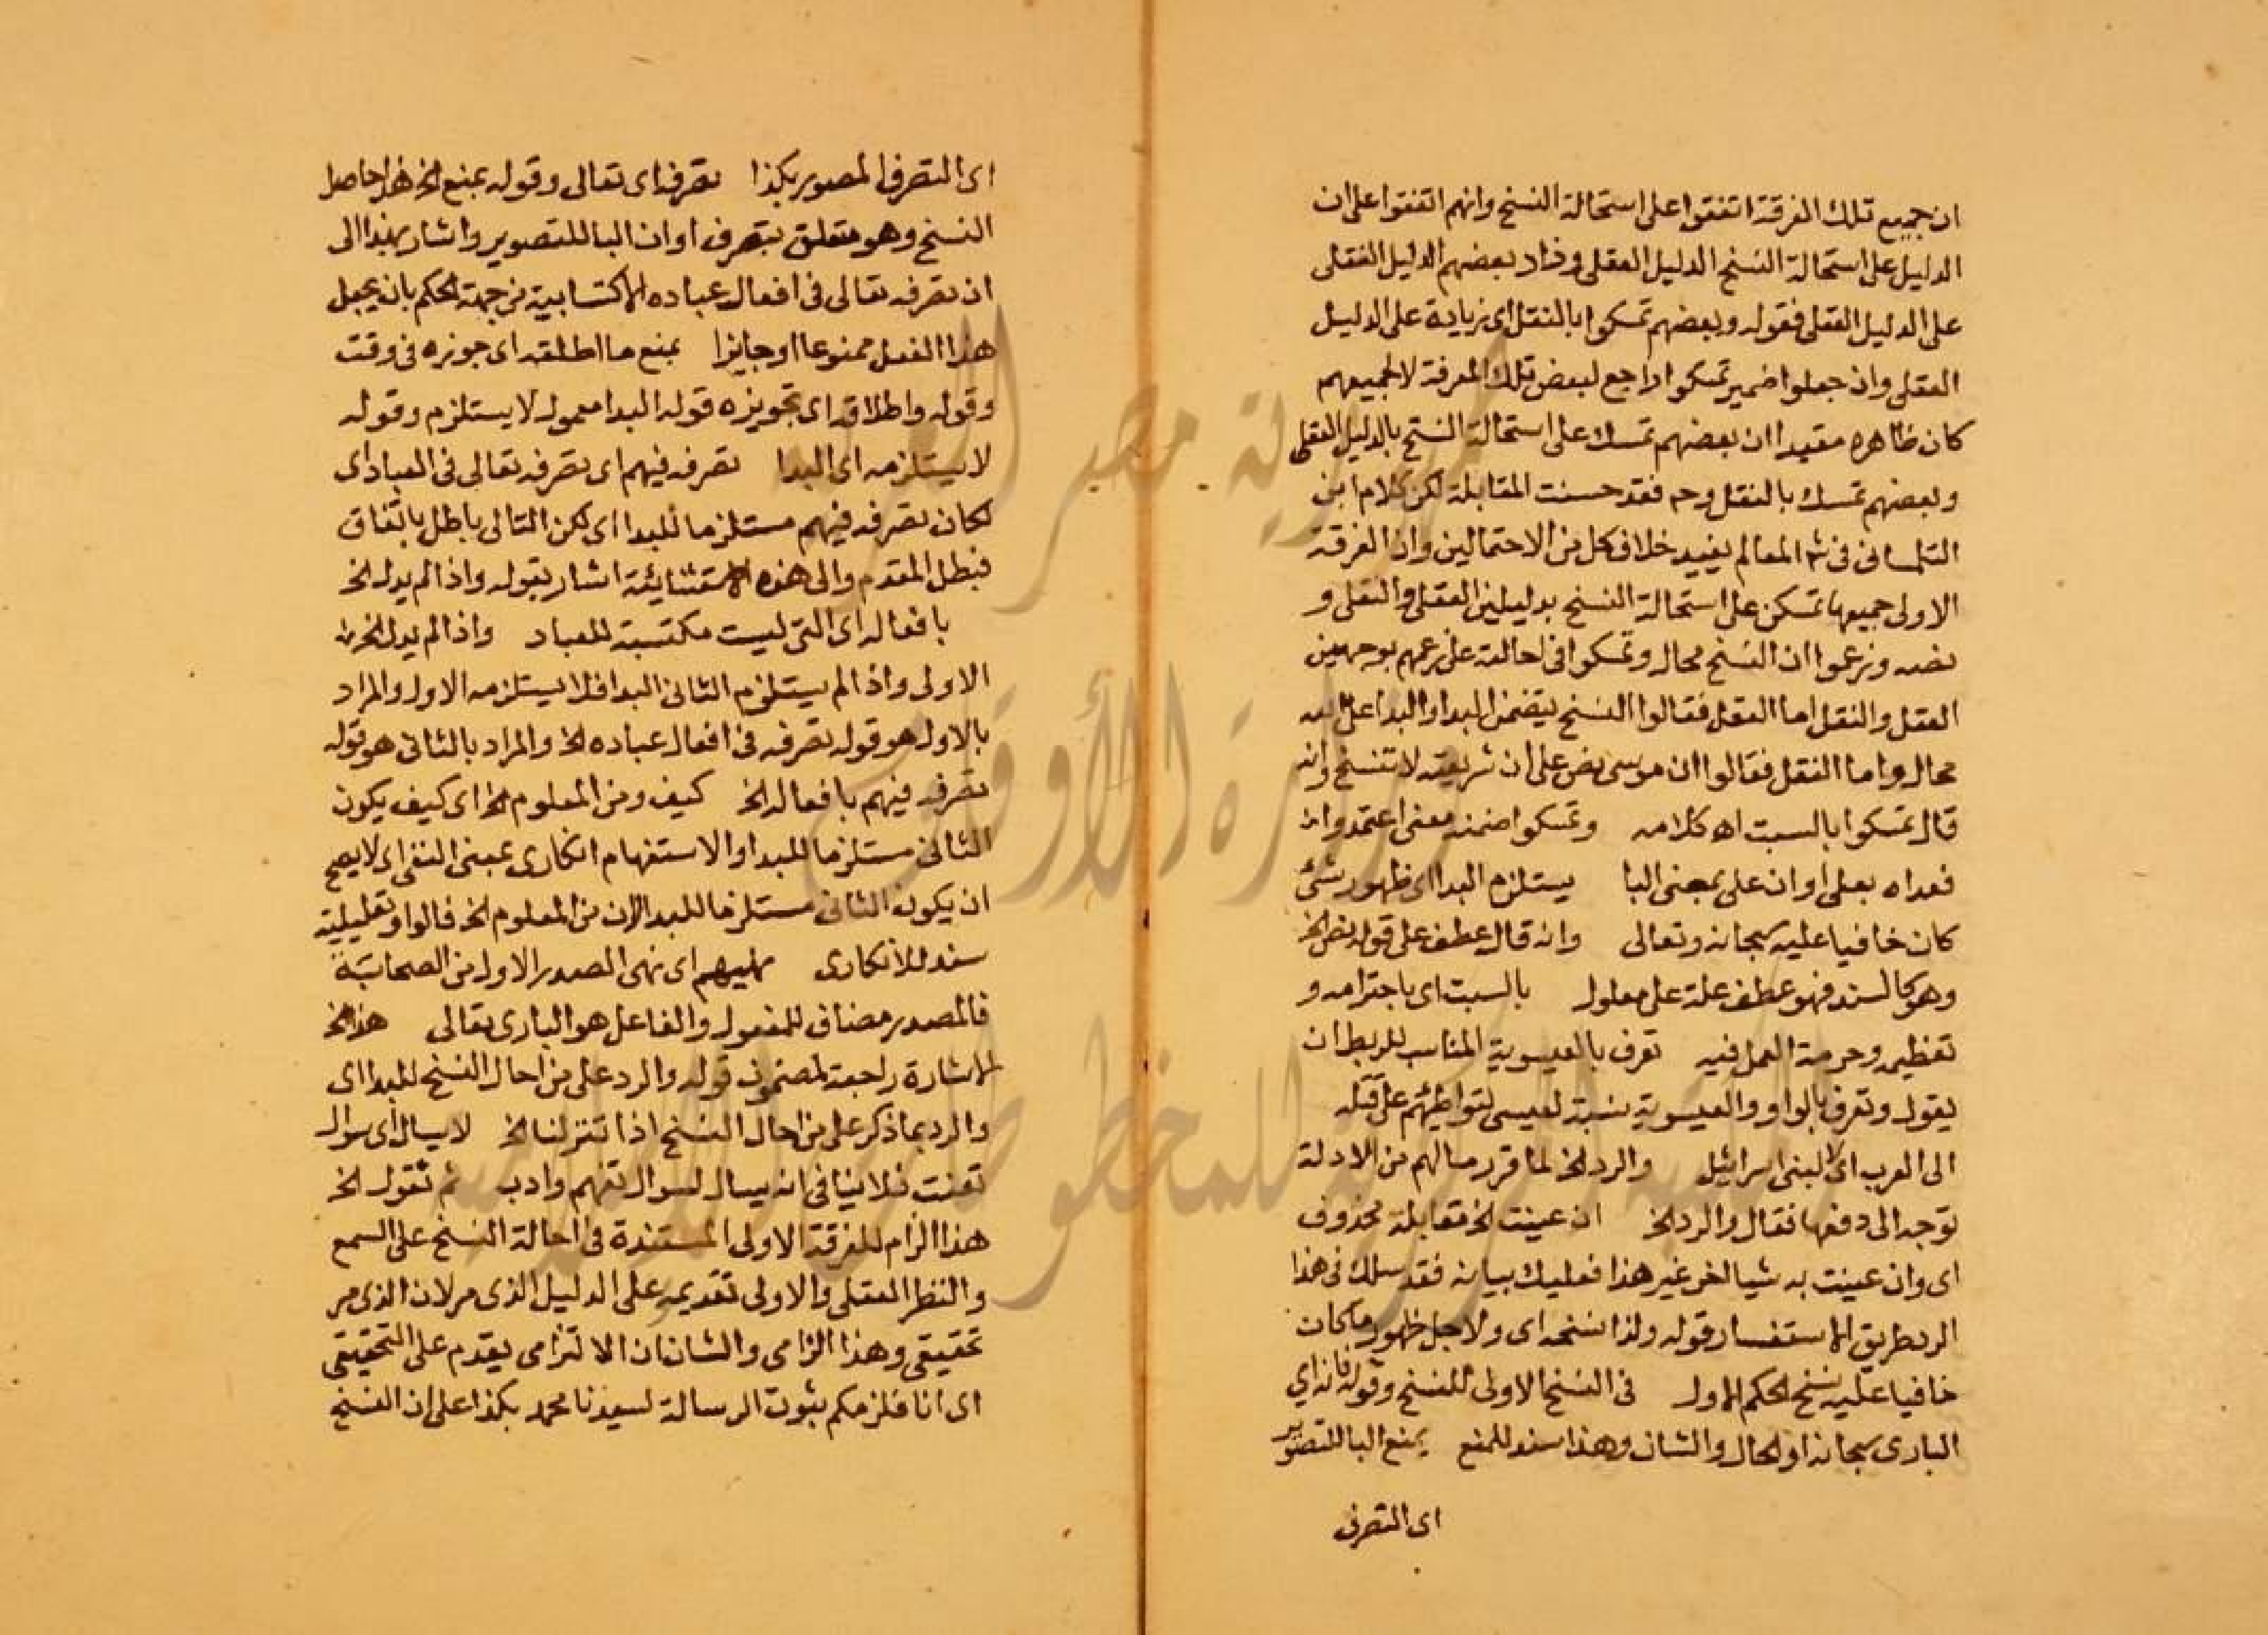 ان جميع تلك الفرقة اتفقوا على استحالة النسخ وانهم اتفقوا على ان
الدليل على استحالة النسخ الدليل العقلى وزاد بعضهم الدليل النقلى
على الدليل العقلى فقوله وبعضهم تمسكوا بالنقل اى زيادة على الدليل
العقلى وان جعلوا ضمير تمسكوا راجع لبعض تلك الفرقة لا لجميعهم
كان ظاهره مفيدا ان بعضهم تمسك على استحالة النسخ بالدليل العقلى
وبعضهم تمسك بالنقل وح فقد حسنت المقابلة لكن كلام ابن
التلمسانى فى شرح المعالم يفيد خلاف كل من الاحتمالين وان الفرقة
الاولى جميعها تمسكن على استحالة النسخ بدليلين العقلى والنقلى و
نصه وزعموا ان النسخ محال وتمسكوا فى احالته على زعمهم بوجهين
العقل والنقل اما العقل فقالوا النسخ يتضمن البدا والبدا على الله
محال واما النقل فقالوا ان موسى نص على ان شريعته لا تنسخ وانه
قال تمسكوا بالسبت اه كلامه وتمسكوا ضمنه معنى اعتمدوا
فعداه بعلى او ان على بمعنى البا يستلزم البدا اى ظهور شئ
كان خافيا عليه سبحانه وتعالى وانه قال عطف على قوله نص الخ
وهو كالسند فهو عطف علة على معلول بالسبت اى باحترامه و
تعظيمه وحرمة العمل فيه تعرف بالعيسوية المناسب للربط ان
يقول وتعرف بالواو والعيسوية نسبة لعيسى لتواطئهم على قتله
الى العرب اى لا لبنى اسرائيل والرد الخ لما قرر مالهم من الادلة
توجه الى دفعها فقال والرد الخ ان عينت الخ مقابله محذوف
اى وان عينت به شيا اخر غير هذا فعليك بيانه فقد سلك فى هذا
الرد طريق الاستفسار قوله ولذا نسخه اى ولاجل ظهور ما كان
خافيا عليه نسخ الحكم الاول فى النسخ الاولى للنسخ وقوله فانه اي
البارى سبحانه او الحال والشان وهذا سند للمنع يمنع البا للتصوير
اى التصرف
اى التصرف المصور بكذا تصرفه اى تعالى وقوله بمنع الخ هذا حاصل
النسخ وهو متعلق بتصرف او ان البا للتصوير واشار بهذا الى
ان تصرفه تعالى فى افعال عباده الاكتسابية من جهة الحكم بان يجعل
هذا الفعل ممنوعا او جايزا بمنع ما اطلقه اى جوزه فى وقت
وقوله واطلاقه اى تجويزه قوله البدا معمول لا يستلزم وقوله
لا يستلزمه اى البدا تصرفه فيهم اى تصرفه تعالى فى العباد اى
لكان تصرفه فيهم مستلزما للبدا اى لكن التالى باطل باتفاق
فبطل المقدم والى هذه الاستثنائية اشار بقوله واذا لم يدل الخ
بافعاله اى التى ليست مكتسبة للعباد واذا لم يدل الخ
الاولى واذا لم يستلزم الثانى البدا فلا يستلزمه الاول والمراد
بالاول هو قوله تصرفه فى افعال عباده الخ والمراد بالثانى هو قوله
تصرفه فيهم بافعاله الخ كيف ومن المعلوم الخ اى كيف يكون
الثانى مستلزما للبدا والاستفهام انكارى بمعنى النفى اى لا يصح
ان يكون الثانى مستلزما للبدا لان من المعلوم الخ فالواو تعليلية
سند للانكارى نهيهم اى نهى الصدر الاول من الصحابة
فالمصدر مضاف للمفعول والفاعل هو البارى تعالى هذا الخ
الاشارة راجعة لمضمون قوله والرد على من احال النسخ للبدا اى
والرد بما ذكر على من احال النسخ اذا تنزلنا الخ لا يسال اى سوال
تعنت فلا ينافى انه يسال لسوال تفهم وادب ثم نقول الخ
هذا الزام للفرقة الاولى المستندة فى احالة النسخ على السمع
والنظر العقلى والاولى تقديمه على الدليل الذى مر لان الذى مر
تحقيقى وهذا الزامى والشان ان الالتزامى يقدم على التحقيقى
اى انا نلزمكم بثبوت الرسالة لسيدنا محمد بكذا على ان النسخ